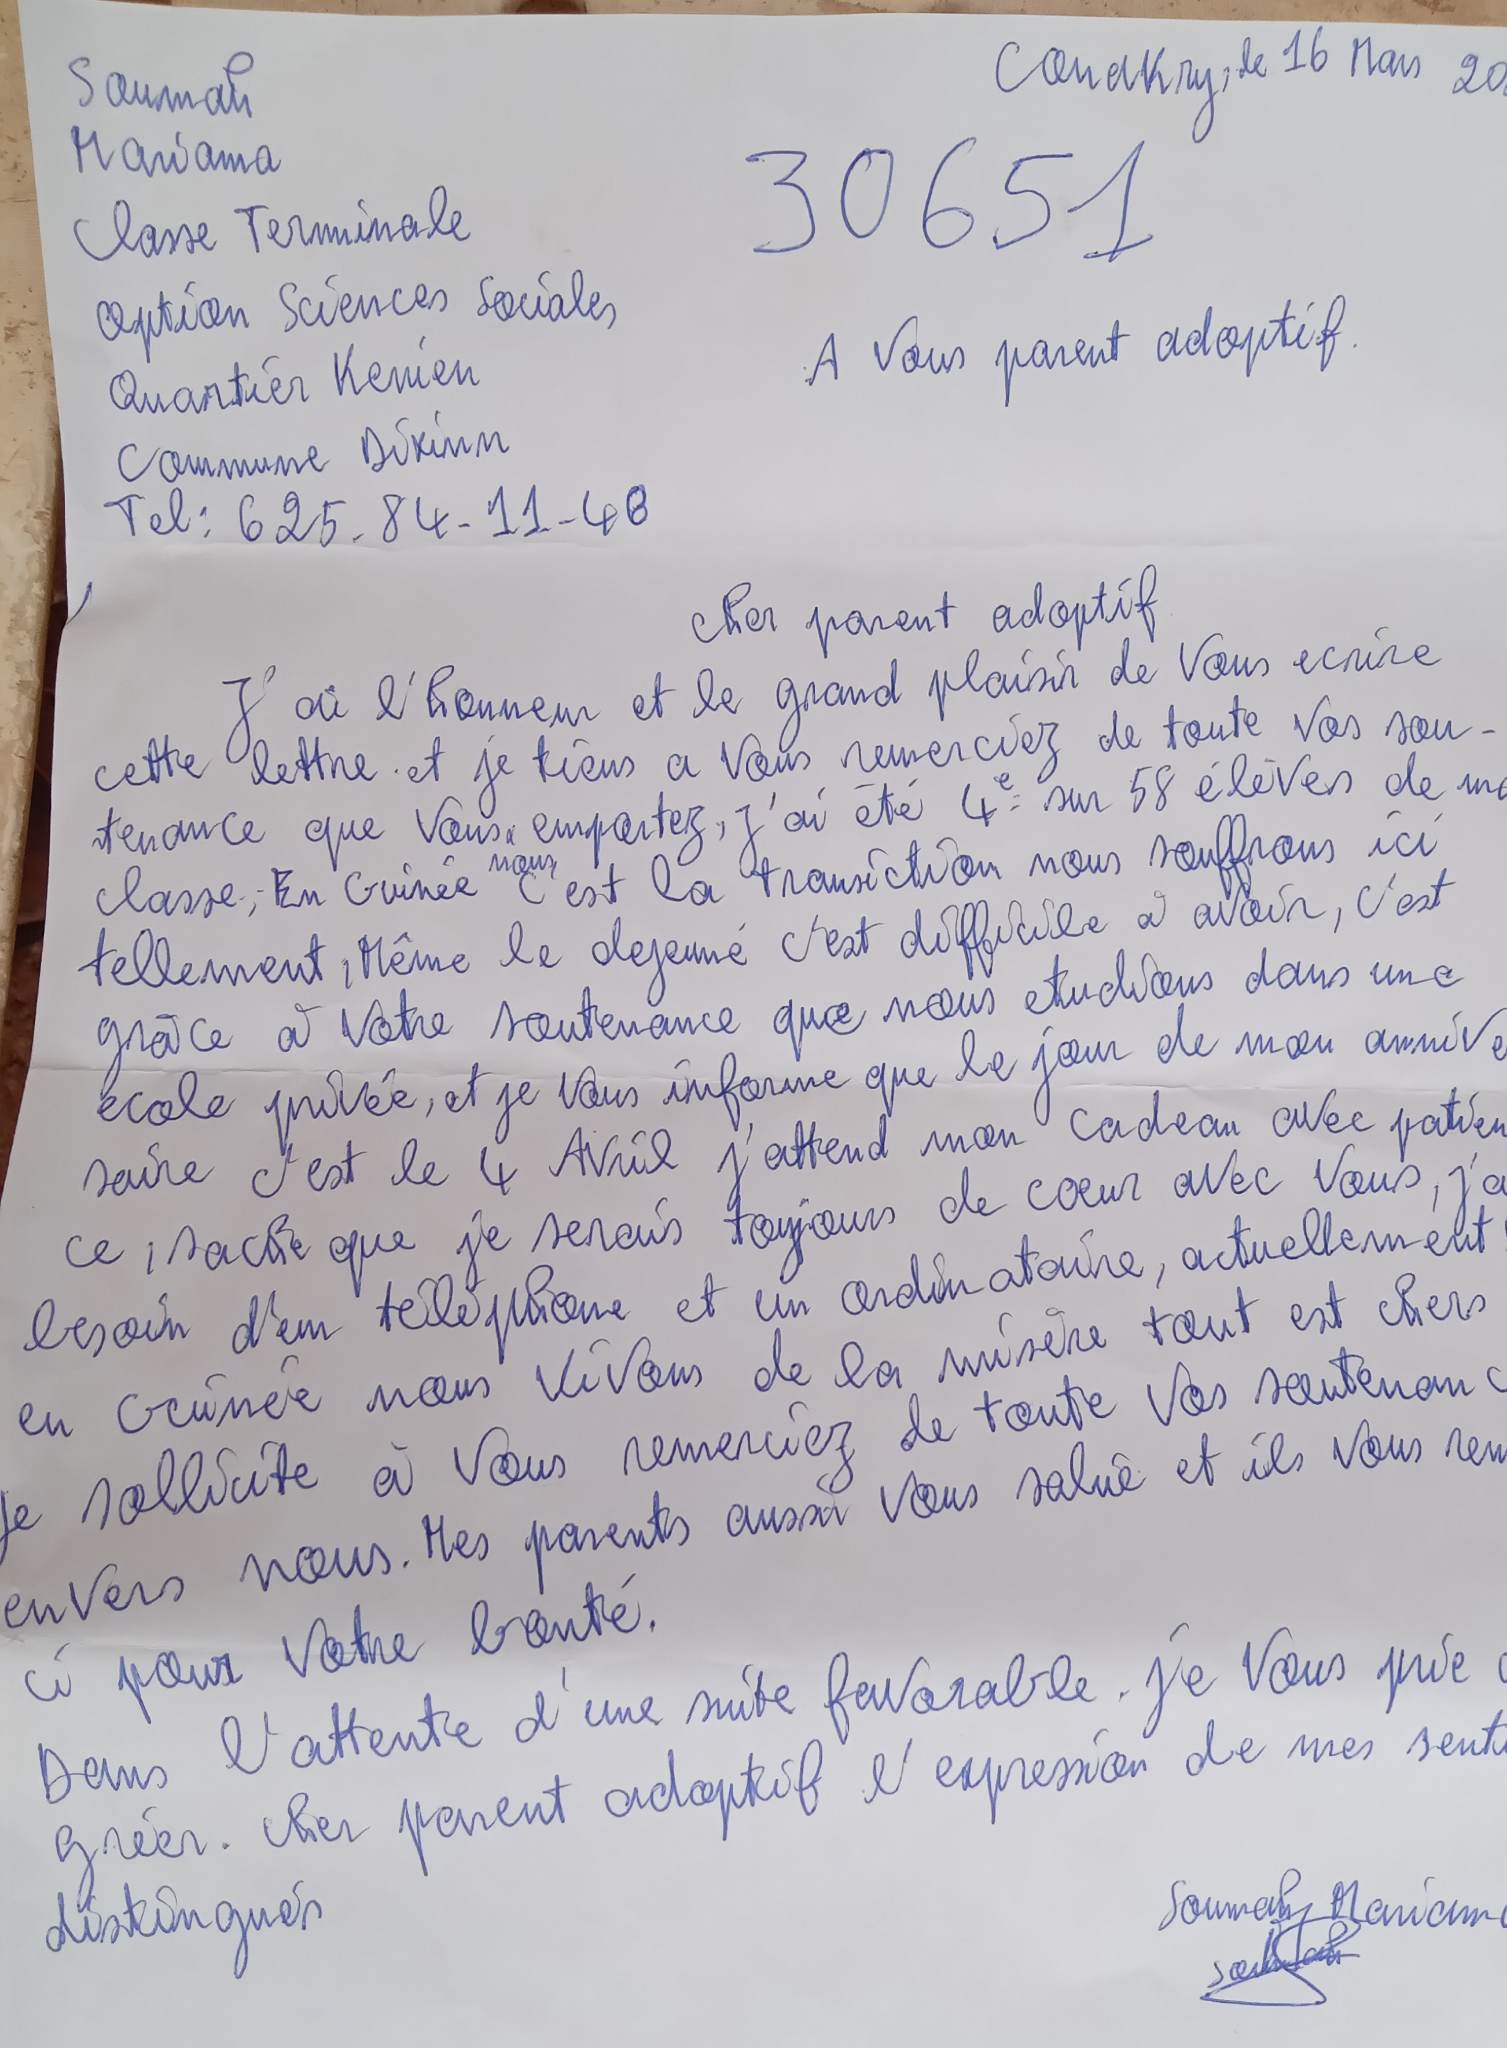 Soumah
Mariama
Classe Terminale
Option Sciences Sociales
Quartier Kenien
Commune Dixinn
Tel: 625-84-11-40
Conakry, le 16 Mars 20
30651
A Vous parent adoptif.
Cher parent adoptif
J'ai l'honneur et le grand plaisir de Vous ecrire
cette lettre et je tiens a Vous remerciez de toute Vos sou-
tenance que Vous emportez, J'ai été 4e sur 58 élèves de ma
classe, En Guinée nous c'est la transiction nous souffrons ici
tellement, Même le dejeuné c'est difficile à avoir, c'est
grâce à Votre soutenance que nous etudions dans une
ecole privée, et je Vous informe que le jour de mon annive
saire c'est le 4 Avril j'attend mon cadeau avec patien
ce, sache que je serais toujours de cœur avec Vous, j'a
besoin d'un téléphone et un ordinataire, actuellement
en Guinée nous Vivons de la misère tout est chers
Je sollicite à Vous remerciez de toute Vos soutenanc
envers nous. Mes parents aussi Vous salue et ils Vous rem
ci pour Votre bonté.
Dans l'attente d'une suite favorable. je Vous prie
gréer. Cher parent adoptif l'expression de mes senti
distingués
Soumah Mariama